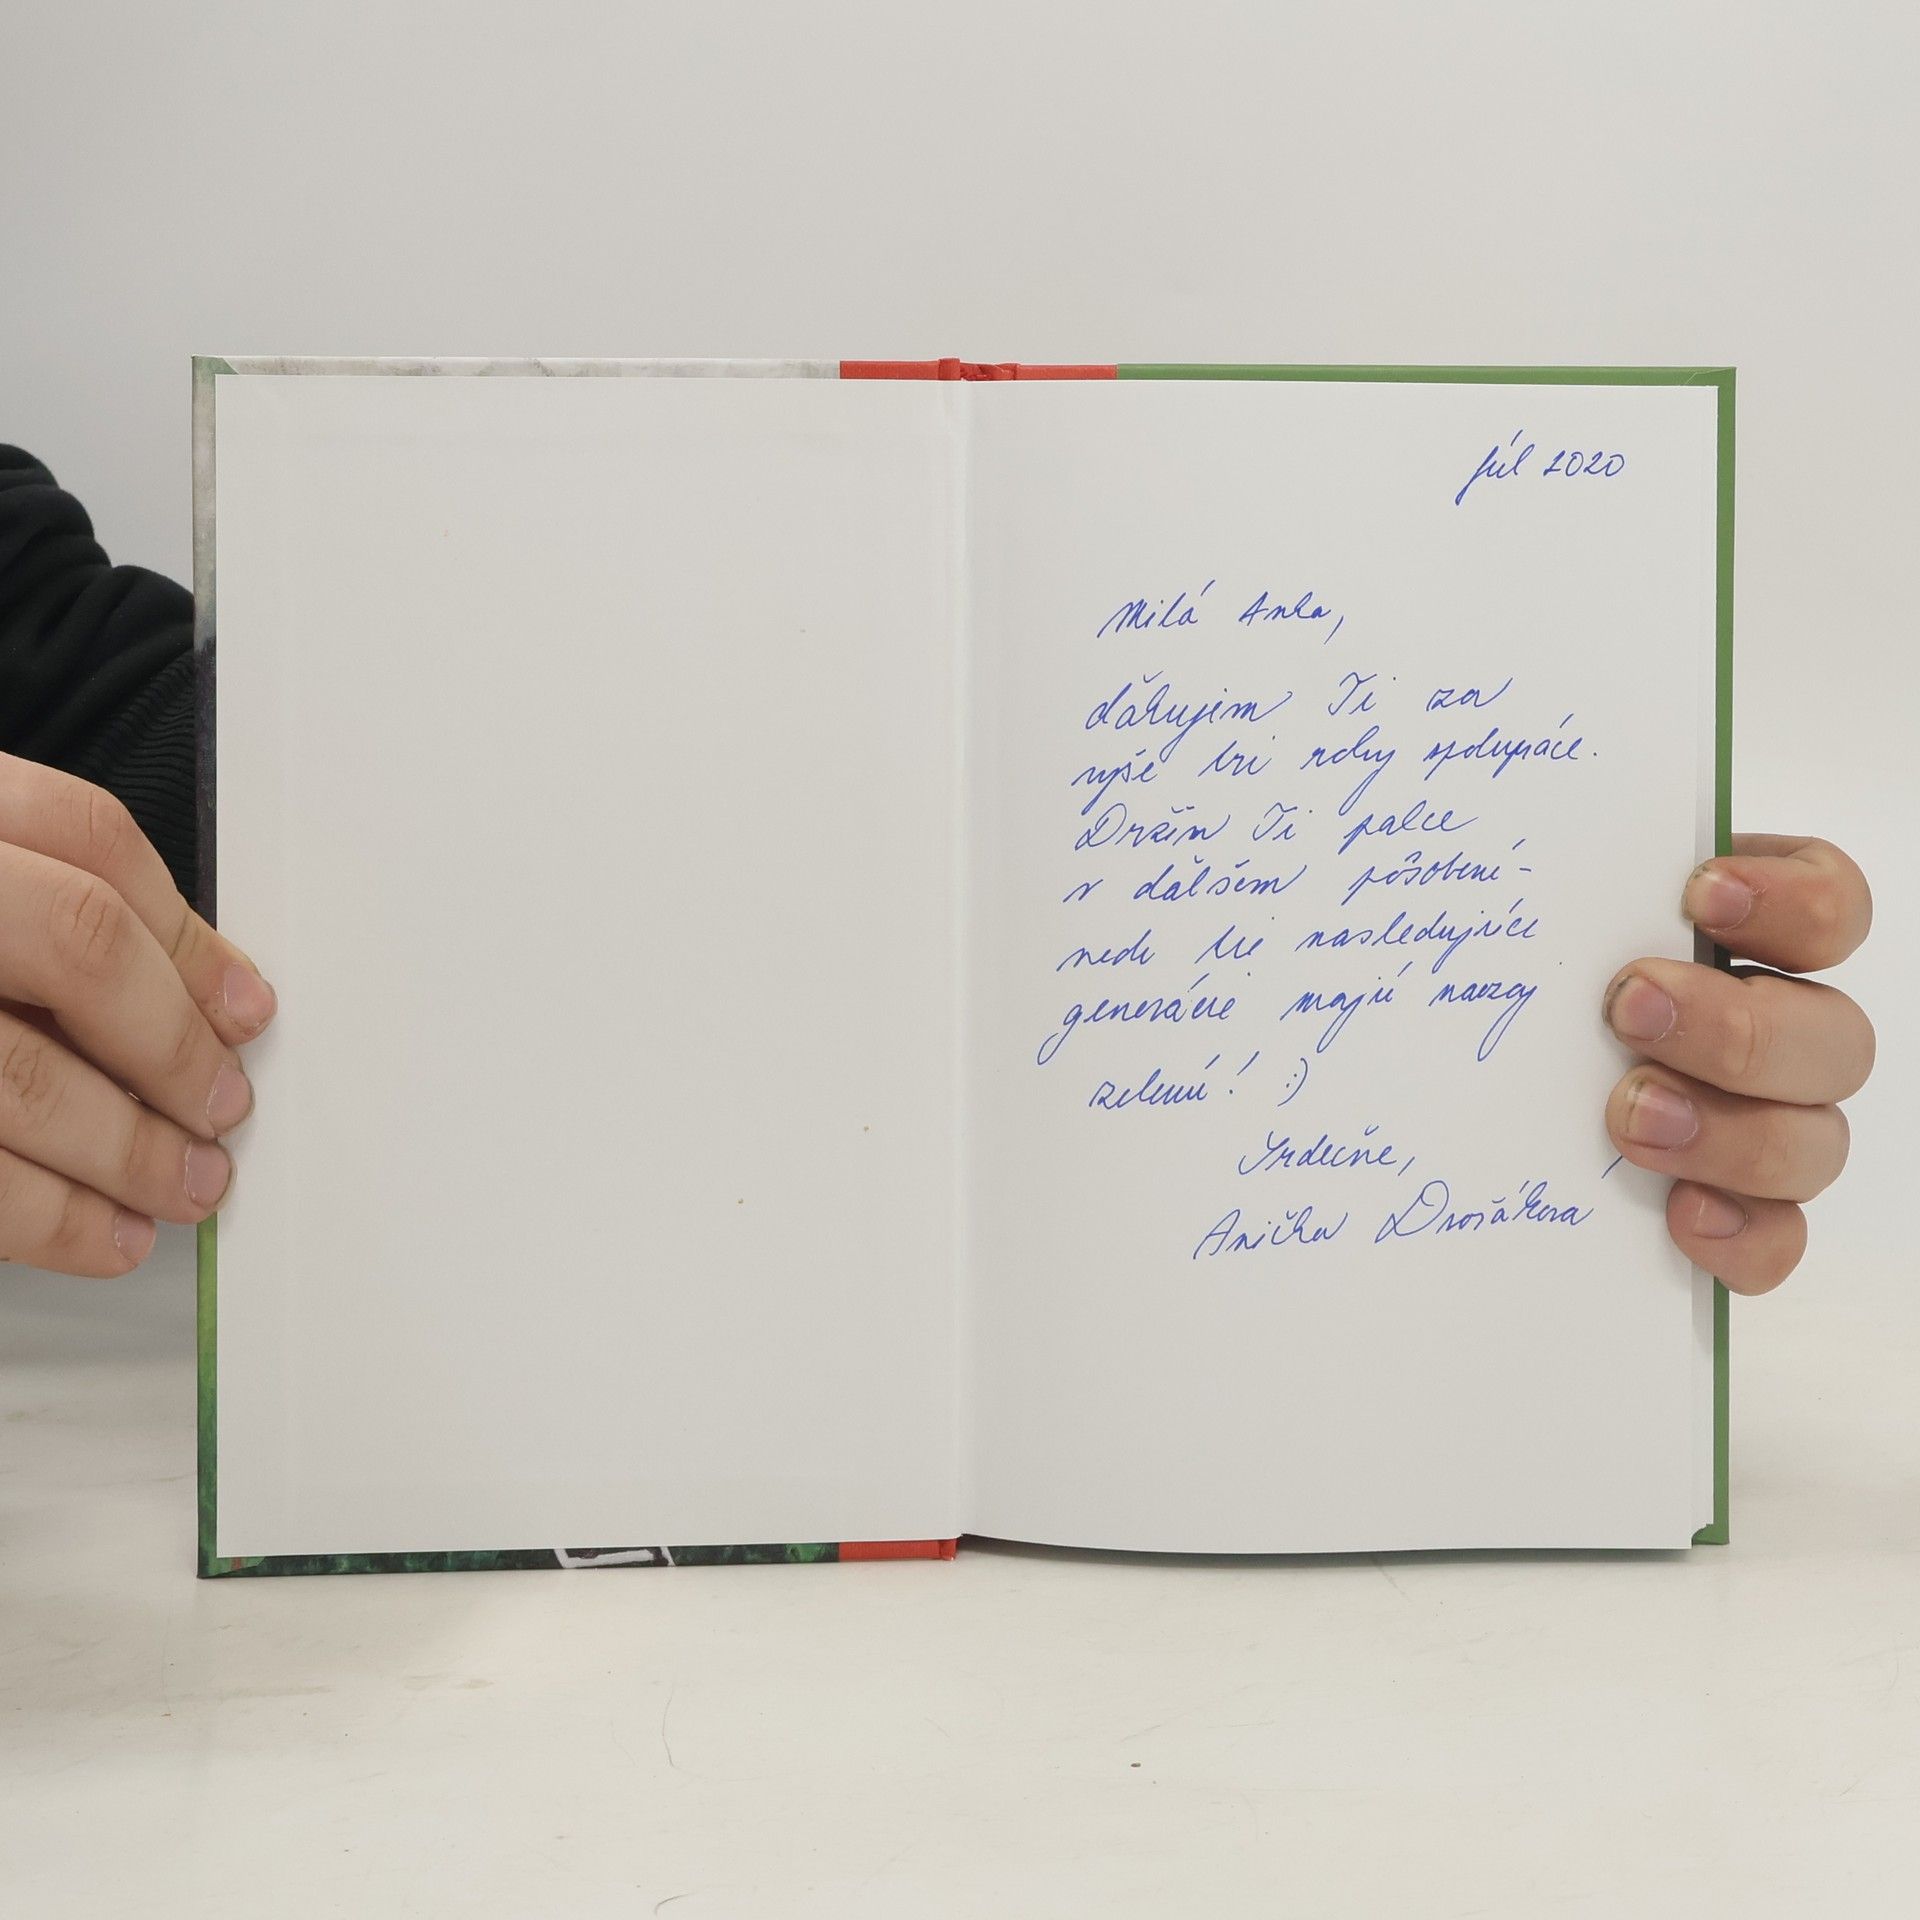 júl 2020
Milá Anka,
ďakujem Ti za
vyše tri roky spolupráce.
Držím Ti palce
v ďalšom pôsobení -
nech tie nasledujúce
generácie majú naozaj
zelenú! :)
Srdečne,
Anička Dvořáková